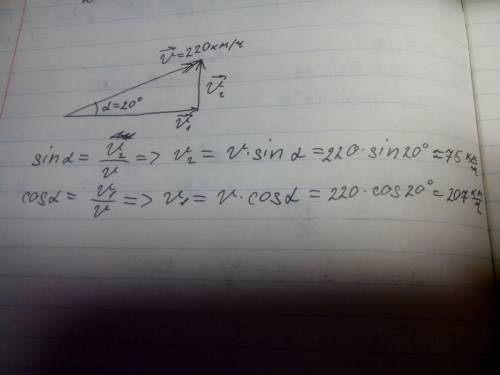 v⃗=220км/ч
α=20°
v⃗₂
v⃗₁
sinα = v₂/v => v₂ = v·sinα = 220·sin20° ≈ 75 км/ч
cosα = v₁/v => v₁ = v·cosα = 220·cos20° = 207 км/ч